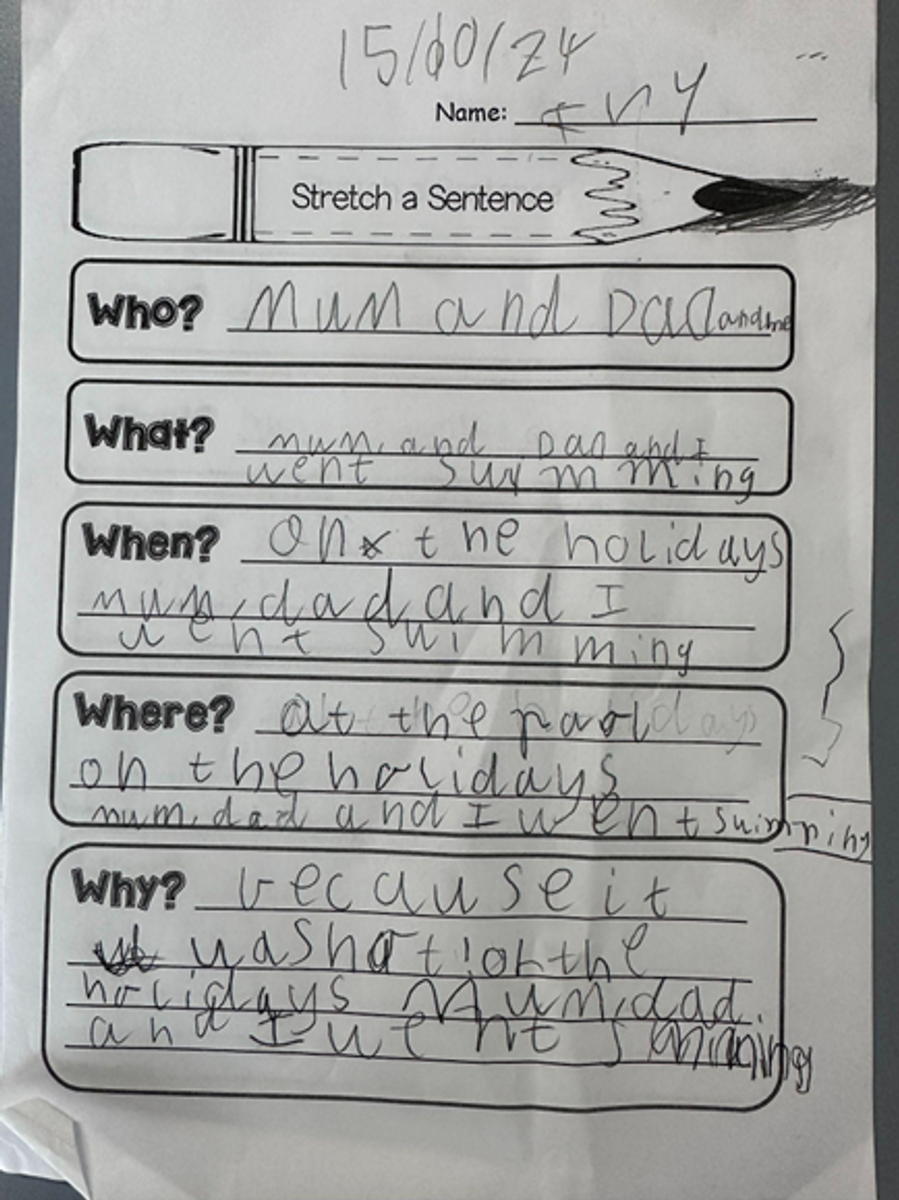 15/10/24
Name: Ivy
Stretch a Sentence
Who? Mum and Dad and me
What? mum, and Dad and I
went swimming
When? On the holidays
mum, dad and I
went swimming
Where? at the pool
on the holidays
mum, dad and I went swimming
Why? because it
was hot! on the
holidays Mum, dad.
and I went